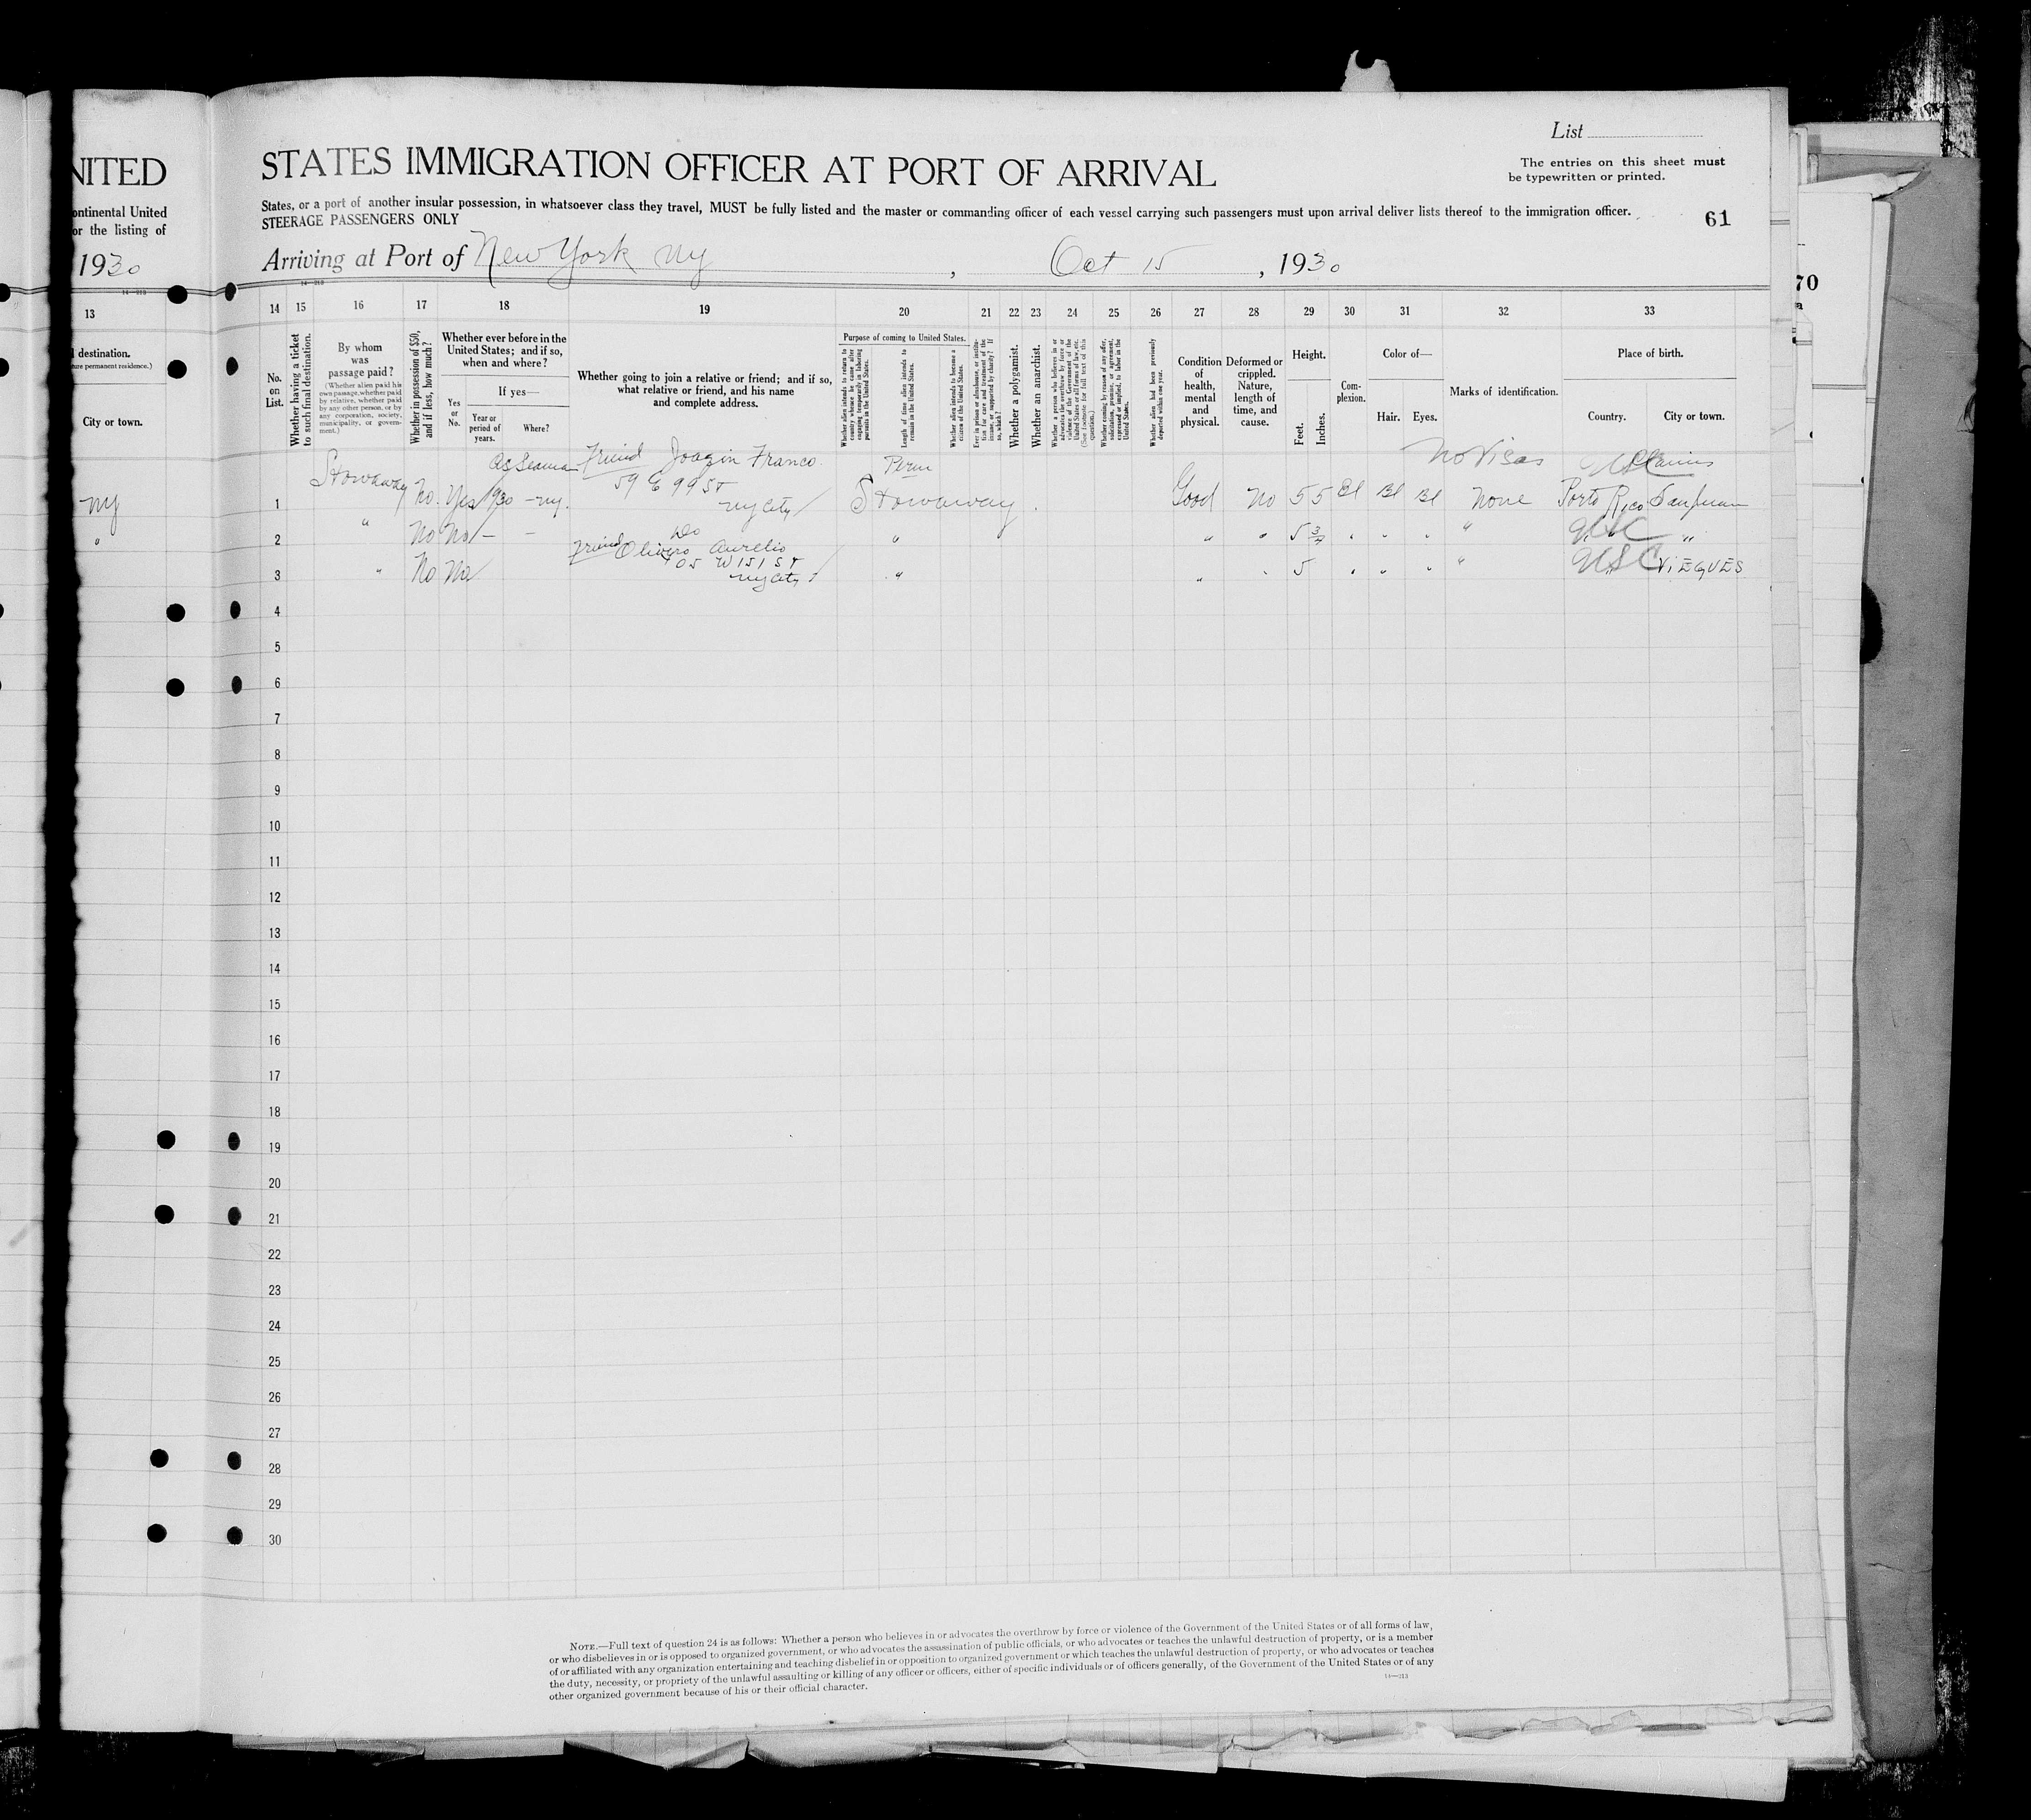 List
The entries on this sheet must
be typewritten or printed.
NITED
STATES IMMIGRATION OFFICER AT PORT OF ARRIVAL
ontinental United
or the listing of
States, or a port of another insular possession, in whatsoever class they travel, MUST be fully listed and the master or commanding officer of each vessel carrying such passengers must upon arrival deliver lists thereof to the immigration officer.
STEERAGE PASSENGERS ONLY
61
1930
Arriving at Port of New York NY, Oct 15, 1930
70
13
14 15 16 17 18 19 20 21 22 23 24 25 26 27 28 29 30 31 32 33
l destination.
City or town.
No. on List.
Whether having a ticket to such final destination.
By whom was passage paid?
(Whether alien paid his own passage, whether paid by relative, whether paid by any other person, or by any corporation, society, municipality, or government.)
Whether in possession of $50, and if less, how much?
Whether ever before in the United States; and if so, when and where?
Yes or No.
If yes—
Year or period of years.
Where?
Whether going to join a relative or friend; and if so, what relative or friend, and his name and complete address.
Purpose of coming to United States.
Whether alien intends to return to country whence he came after engaging temporarily in laboring pursuits in the United States.
Length of time alien intends to remain in the United States.
Whether alien intends to become a citizen of the United States.
Ever in prison or almshouse, or institution for care and treatment of the insane, or supported by charity? If so, which?
Whether a polygamist.
Whether an anarchist.
Whether a person who believes in or advocates the overthrow by force or violence of the Government of the United States or all forms of law, etc. (See footnote for full text of this question.)
Whether coming by reason of any offer, solicitation, promise, or agreement, expressed or implied, to labor in the United States.
Whether alien had been previously deported within one year.
Condition of health, mental and physical.
Deformed or crippled. Nature, length of time, and cause.
Height.
Feet. Inches.
Complexion.
Color of—
Hair. Eyes.
Marks of identification.
Place of birth.
Country. City or town.
As Seaman Friend Joaqin Franco Perm No Visas
59 E 99 St
NY 1 Stowaway No. Yes 1930 - NY. NY City Stowaway Good No 5 5 Bl Bl Bl None Porto Rico San Juan
" 2 " No No - - Do " " " 5 3/4 " " " " USC "
Friend Olivero Aurelio
W 151 St
3 " No No NY City " " " 5 " " " " USC VIEQUES
4
5
6
7
8
9
10
11
12
13
14
15
16
17
18
19
20
21
22
23
24
25
26
27
28
29
30
NOTE.—Full text of question 24 is as follows: Whether a person who believes in or advocates the overthrow by force or violence of the Government of the United States or of all forms of law,
or who disbelieves in or is opposed to organized government, or who advocates the assassination of public officials, or who advocates or teaches the unlawful destruction of property, or is a member
of or affiliated with any organization entertaining and teaching disbelief in or opposition to organized government or which teaches the unlawful destruction of property, or who advocates or teaches
the duty, necessity, or propriety of the unlawful assaulting or killing of any officer or officers, either of specific individuals or of officers generally, of the Government of the United States or of any
other organized government because of his or their official character.
14—213